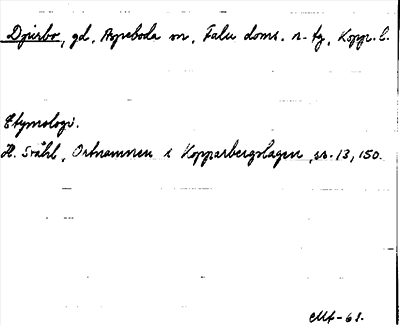 Djurbo, gd, Aspeboda sn, Falu doms. n. tg, Kopp. l.
Etymologi.
H. Ståhl, Ortnamnen i Kopparbergslagen, ss. 13, 150.
-61.